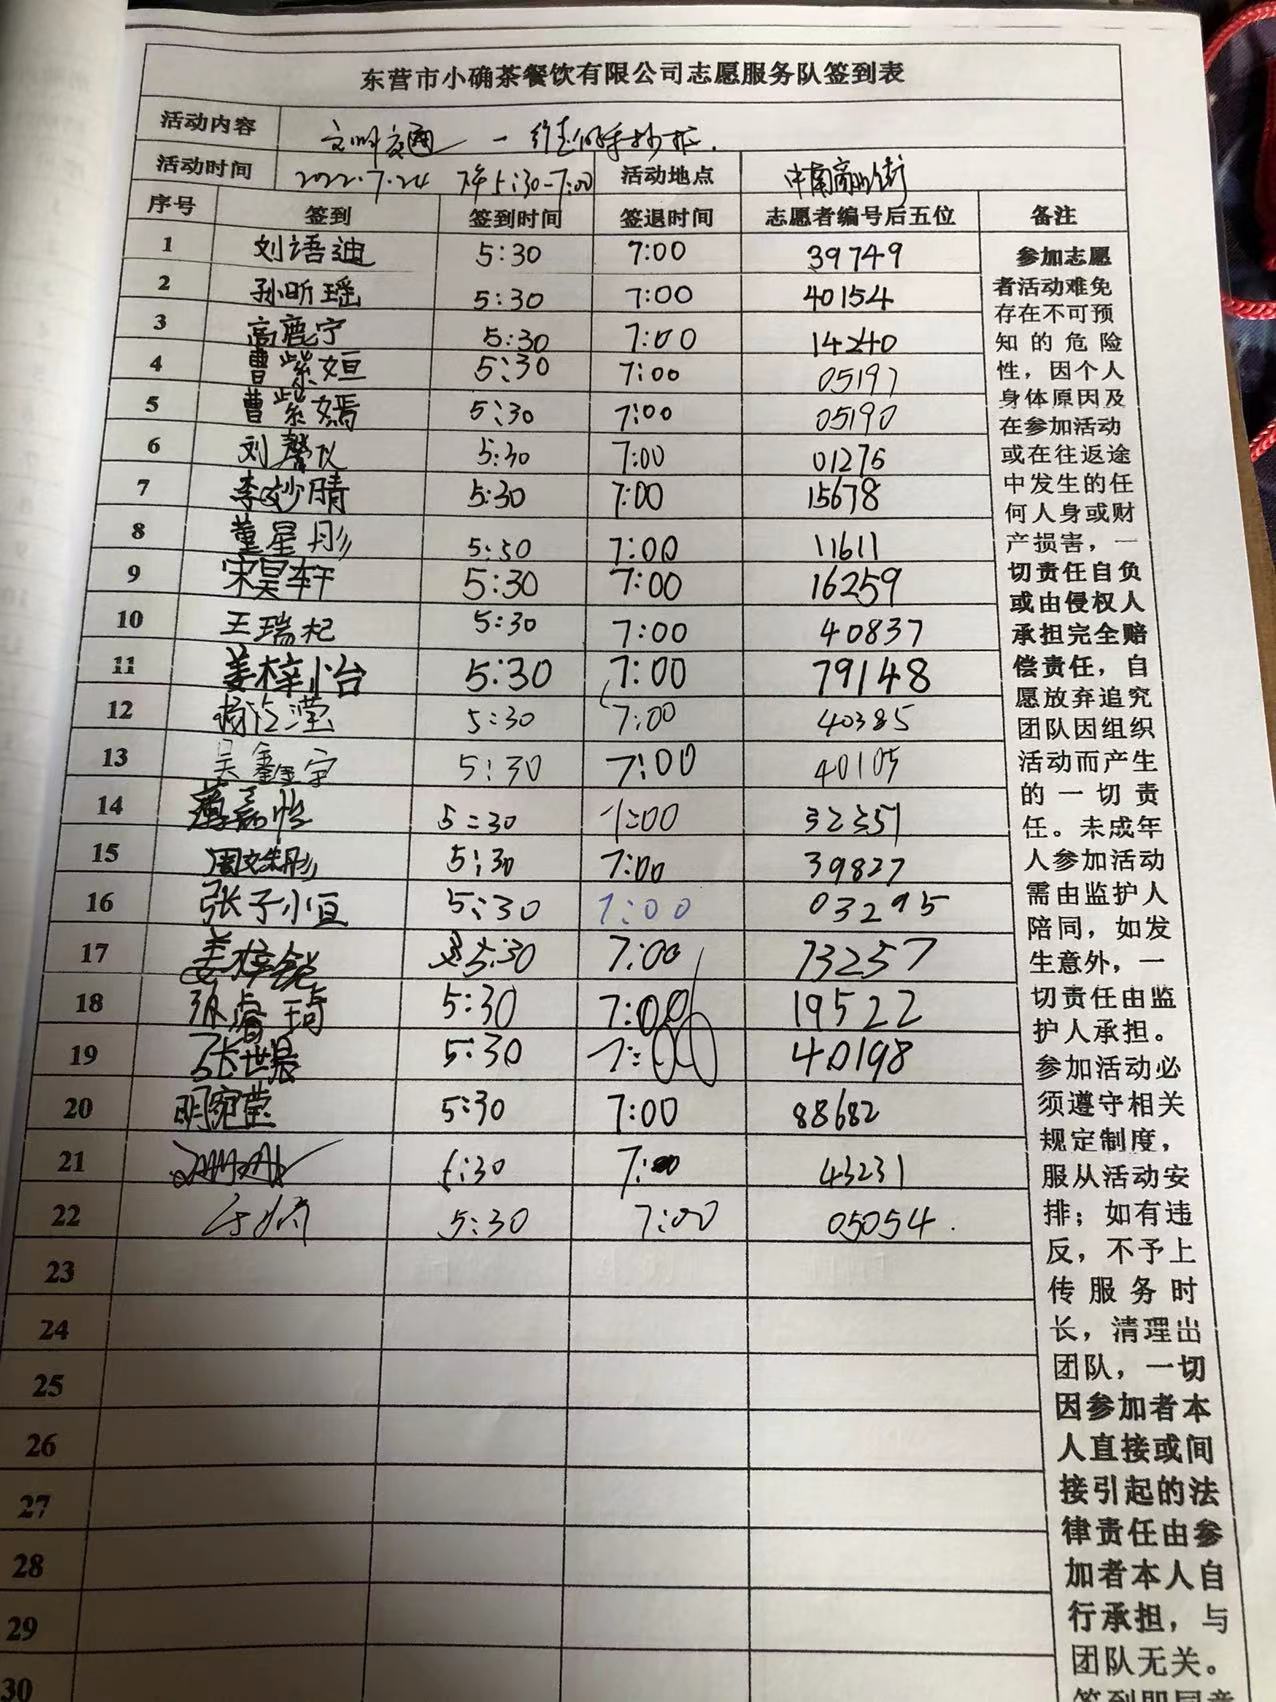 东营市小确茶餐饮有限公司志愿服务队签到表
活动内容 文明交通 手抄报.
活动时间 2022.7.24 下午5:30-7:00 活动地点 中南高山街
序号 签到 签到时间 签退时间 志愿者编号后五位 备注
1 刘语迪 5:30 7:00 39749
2 孙昕瑶 5:30 7:00 40154
3 高鹿宁 5:30 7:00 14240
4 曹紫姮 5:30 7:00 05197
5 曹紫嫣 5:30 7:00 05190
6 刘馨仪 5:30 7:00 01276
7 李妙晴 5:30 7:00 15678
8 董星彤 5:30 7:00 11611
9 宋昊轩 5:30 7:00 16259
10 王瑞杞 5:30 7:00 40837
11 姜梓怡 5:30 7:00 79148
12 5:30 7:00 40385
13 吴鑫宇 5:30 7:00 40105
14 嘉怡 5:30 7:00 32357
15 周文彤 5:30 7:00 39827
16 张子恒 5:30 7:00 03295
17 姜梓锐 5:30 7:00 73257
18 张睿琦 5:30 7:00 19522
19 张世晨 5:30 7:00 40198
20 明宛莹 5:30 7:00 88682
21 5:30 7:00 43231
22 5:30 7:00 05054.
23
24
25
26
27
28
29
30
参加志愿
者活动难免
存在不可预
知的危险
性，因个人
身体原因及
在参加活动
或在往返途
中发生的任
何人身或财
产损害，一
切责任自负
或由侵权人
承担完全赔
偿责任，自
愿放弃追究
团队因组织
活动而产生
的一切责
任。未成年
人参加活动
需由监护人
陪同，如发
生意外，一
切责任由监
护人承担。
参加活动必
须遵守相关
规定制度，
服从活动安
排；如有违
反，不予上
传服务时
长，清理出
团队，一切
因参加者本
人直接或间
接引起的法
律责任由参
加者本人自
行承担，与
团队无关。
签到即同意